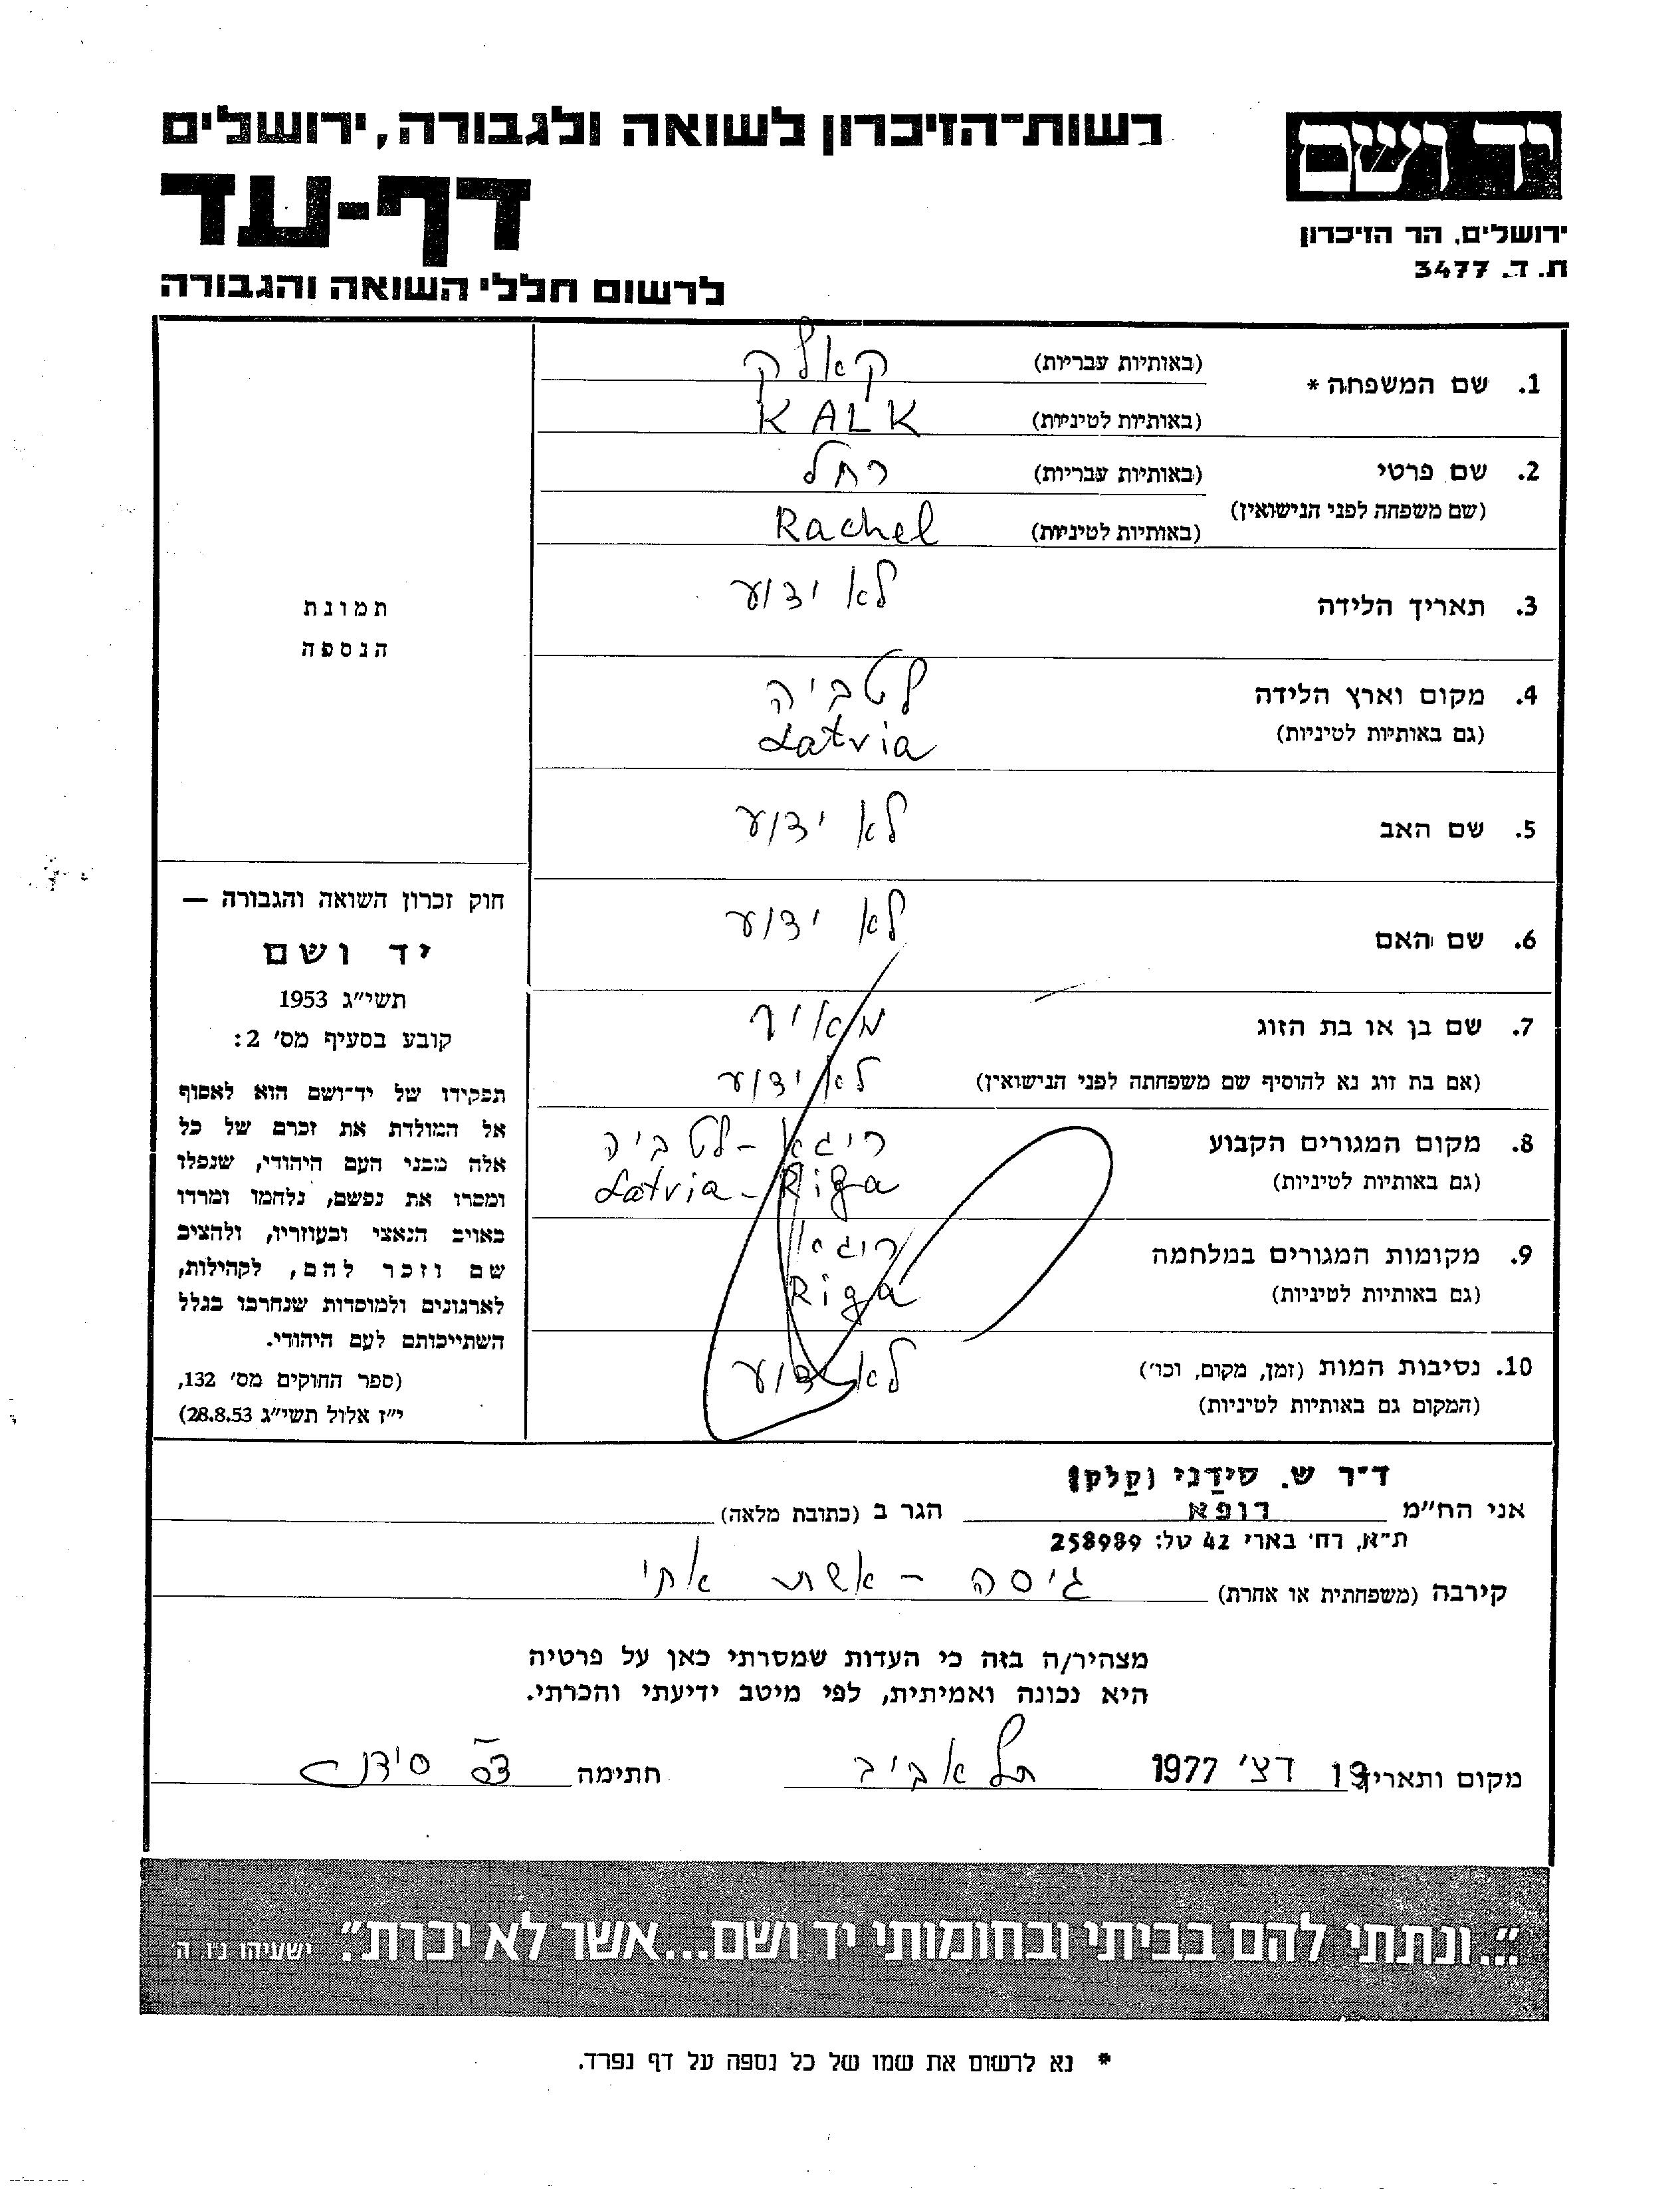 רשות־הזיכרון לשואה ולגבורה, ירושלים
דף-עד
לרשום חללי השואה והגבורה
יד ושם
ירושלים, הר הזיכרון
ת. ד. 3477
1. שם המשפחה *
(באותיות עבריות) קאלק
(באותיות לטיניות) KALK
2. שם פרטי
(שם משפחה לפני הנישואין)
(באותיות עבריות) רחל
(באותיות לטיניות) Rachel
3. תאריך הלידה לא ידוע
4. מקום וארץ הלידה לטביה
(גם באותיות לטיניות) Latvia
5. שם האב לא ידוע
6. שם האם לא ידוע
7. שם בן או בת הזוג
(אם בת זוג נא להוסיף שם משפחתה לפני הנישואין) לא ידוע
8. מקום המגורים הקבוע ריגא - לטביה
(גם באותיות לטיניות) Latvia - Riga
9. מקומות המגורים במלחמה ריגא
(גם באותיות לטיניות) Riga
10. נסיבות המות (זמן, מקום, וכו') לא ידוע
(המקום גם באותיות לטיניות)
תמונת
הנספה
חוק זכרון השואה והגבורה —
יד ושם
תשי"ג 1953
קובע בסעיף מס' 2:
תפקידו של יד־ושם הוא לאסוף
אל המולדת את זכרם של כל
אלה מבני העם היהודי, שנפלו
ומסרו את נפשם, נלחמו ומרדו
באויב הנאצי ובעוזריו, ולהציב
שם וזכר להם, לקהילות,
לארגונים ולמוסדות שנחרבו בגלל
השתייכותם לעם היהודי.
(ספר החוקים מס' 132,
י"ז אלול תשי"ג 28.8.53)
ד"ר ש. סידני (קלק)
אני הח"מ רופא הגר ב (כתובת מלאה)
ת"א, רח' בארי 42 טל: 258989
קירבה (משפחתית או אחרת) גיסה - אשת אחי
מצהיר/ה בזה כי העדות שמסרתי כאן על פרטיה
היא נכונה ואמיתית, לפי מיטב ידיעתי והכרתי.
מקום ותאריך 19 דצ' 1977 תל אביב חתימה
"...ונתתי להם בביתי ובחומותי יד ושם...אשר לא יכרת". ישעיהו נ"ו, ה
* נא לרשום את שמו של כל נספה על דף נפרד.